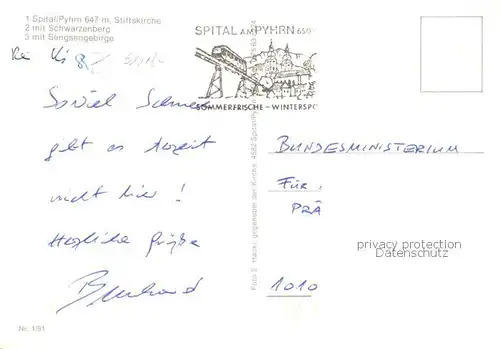 1 Spital/Pyhrn 647 m, Stiftskirche
2 mit Schwarzenberg
3 mit Sengsengebirge
SPITAL AM PYHRN 650
SOMMERFRISCHE - WINTERSPO
Soviel Schnee
gibt es derzeit
nicht hier!
Herzliche Grüße
Bernhard
Nr. 1/51
Foto E. Hackl, gegenüber der Kirche, 4582 Spital/Pyhrn
BUNDESMINISTERIUM
FÜR
PRÄ
1010
privacy protection